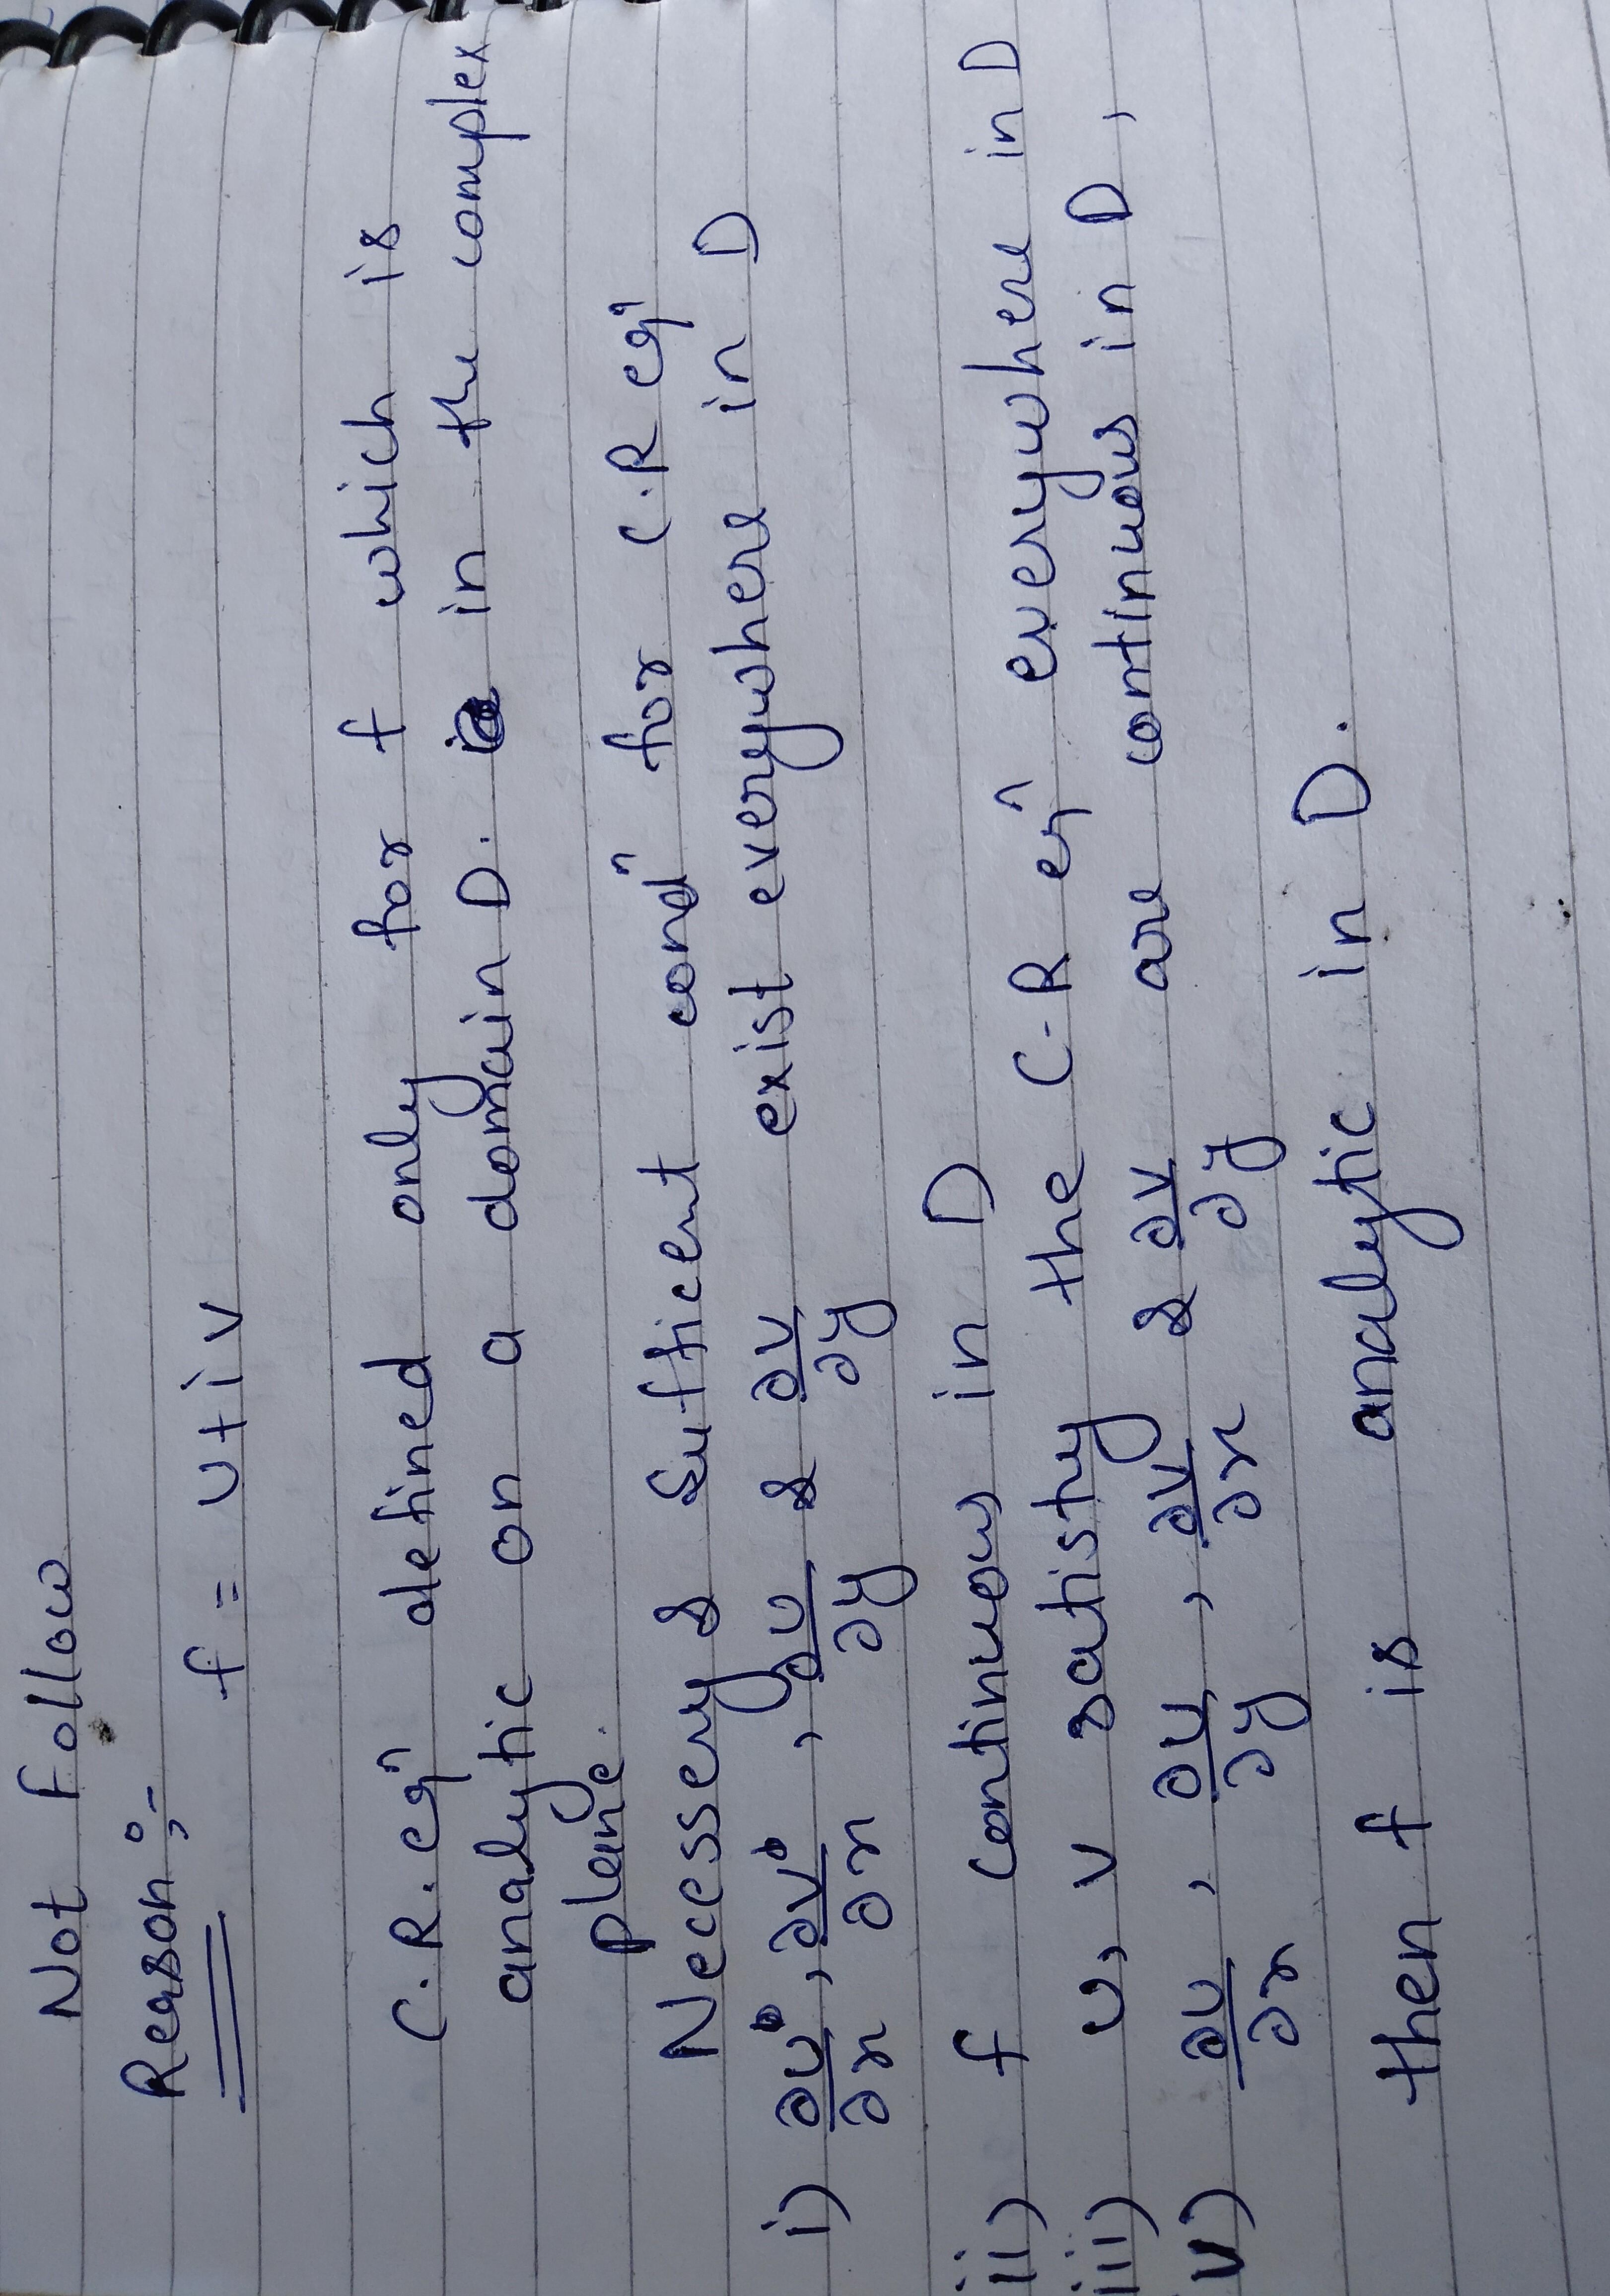 Not Follow
Reason:-
f = u+iv
C.R. eqⁿ defined only for f which is
analytic on a domain D. in the complex
plane.
Necessery & Sufficent condⁿ for C.R eqⁿ
i) ∂u/∂x, ∂v/∂x, ∂u/∂y & ∂v/∂y exist everywhere in D
ii) f continuous in D
iii) u, v satisty the C-R eqⁿ everywhere in D
v) ∂u/∂x, ∂u/∂y, ∂v/∂x & ∂v/∂y are continuous in D,
then f is analytic in D.